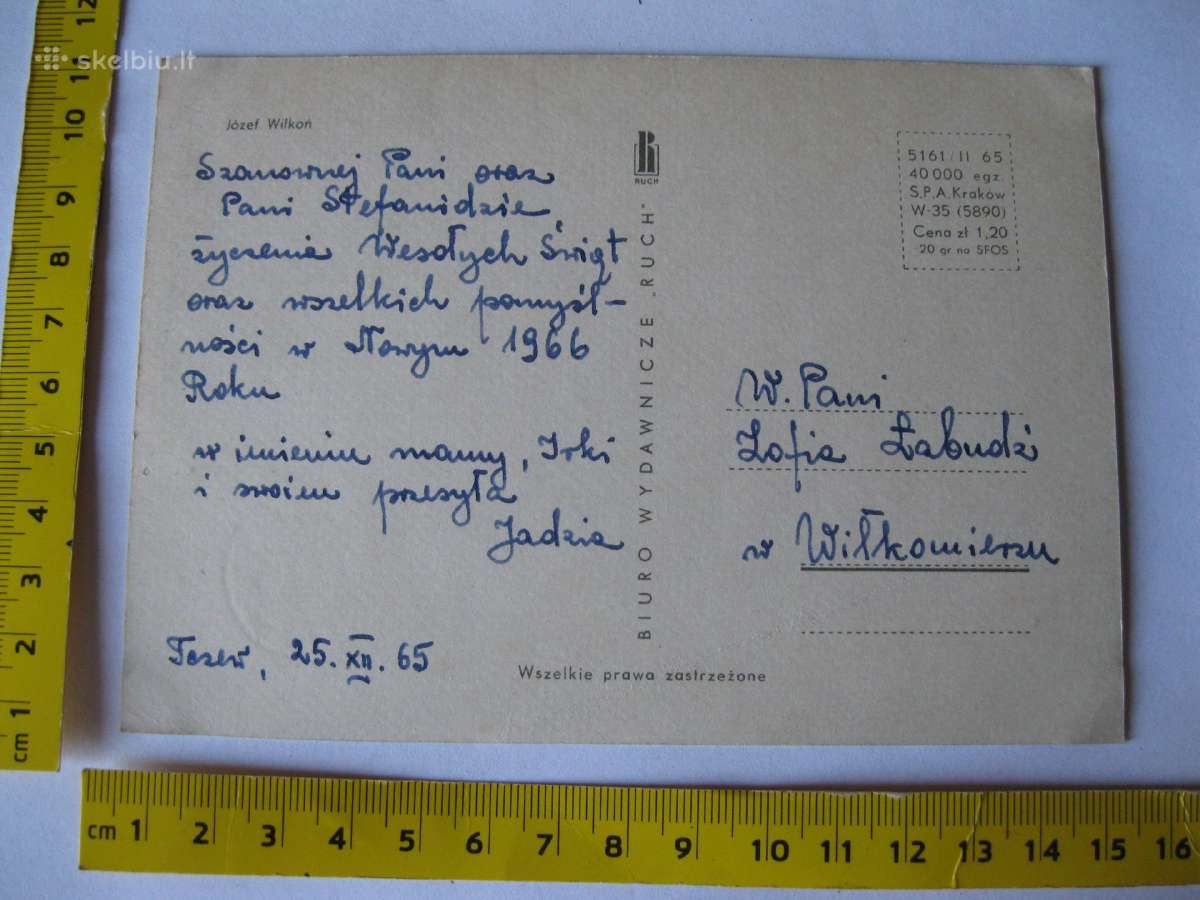 skelbiu.lt
Józef Wilkoń
Szanownej Pani oraz
Pani Stefanidzie,
życzenia Wesołych Świąt
oraz wszelkich pomyśl-
ności w Nowym 1966
Roku
w imieniu mamy, Irki
i swoim przesyła
Jadzia
Tczew, 25.XII.65
RUCH
BIURO WYDAWNICZE „RUCH”
Wszelkie prawa zastrzeżone
5161/II 65
40 000 egz.
S.P.A. Kraków
W-35 (5890)
Cena zł 1,20
20 gr na SFOS
W. Pani
Zofia Łabudź
w Wiłkomierzu
cm 1 2 3 4 5 6 7 8 9 10 11 12
cm 1 2 3 4 5 6 7 8 9 10 11 12 13 14 15 16